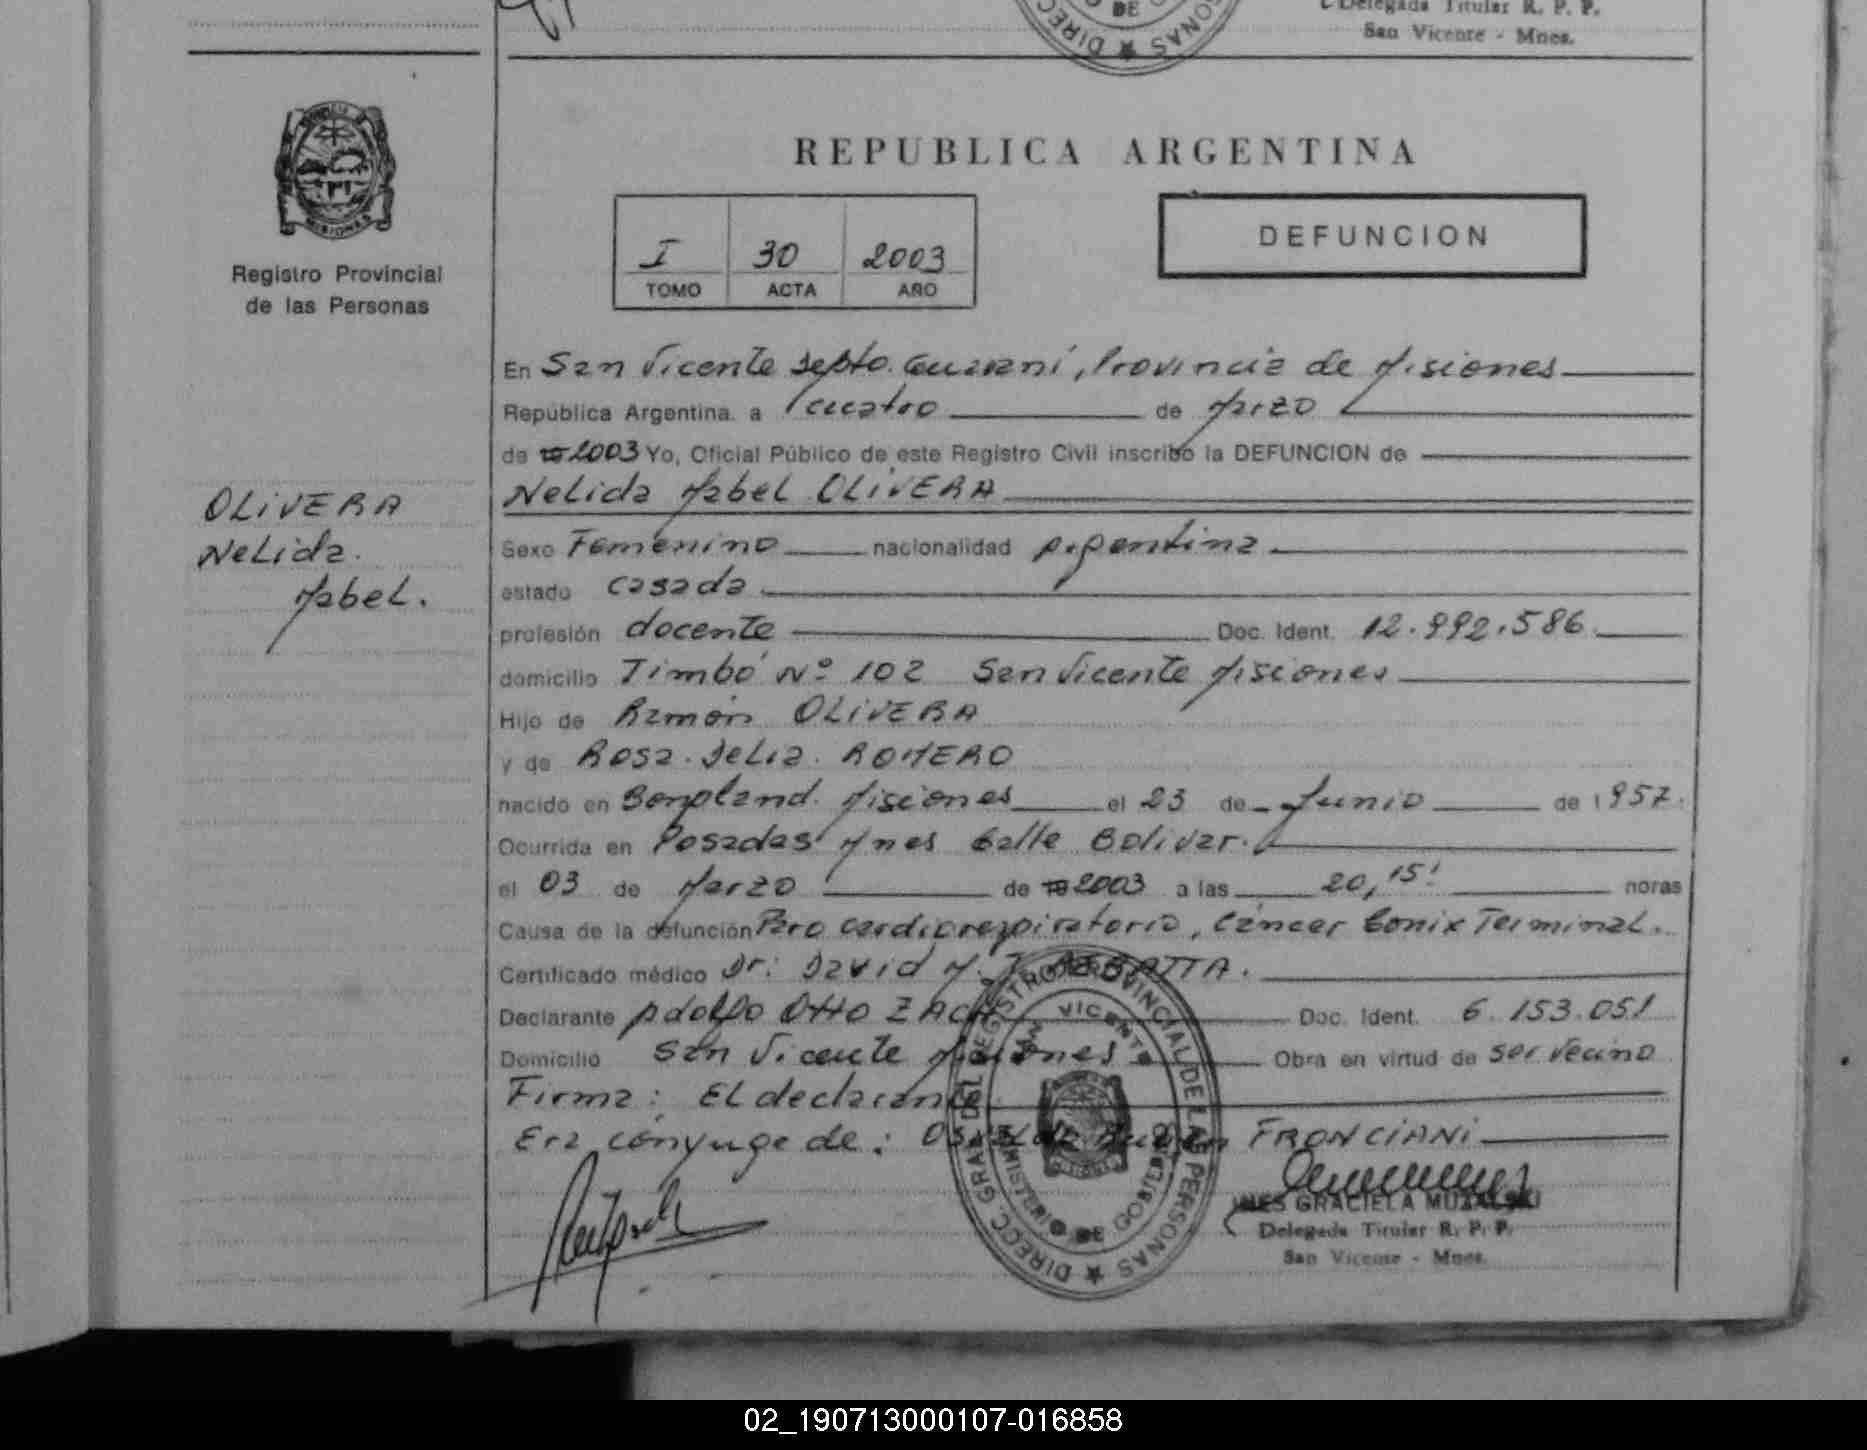 Delegada Titular R. P. P.
San Vicente - Mnes.
DE
DIREC
SONAS
MISIONES
Registro Provincial
de las Personas
REPUBLICA ARGENTINA
I 30 2003
TOMO ACTA AÑO
DEFUNCION
En San Vicente Depto. Guaraní, Provincia de Misiones
República Argentina. a cuatro de Marzo
de 19 2003 Yo, Oficial Público de este Registro Civil inscribo la DEFUNCION de
Nelida Mabel OLIVERA
OLIVERA
Nelida.
Mabel.
Sexo Femenino nacionalidad Argentina
estado casada
profesión docente Doc. Ident. 12.992.586
domicilio Timbó Nº 102 San Vicente Misiones
Hijo de Ramón OLIVERA
y de Rosa. Delia. ROMERO
nacido en Bonpland. Misiones el 23 de Junio de 1957.
Ocurrida en Posadas Mnes Calle Bolivar.
el 03 de Marzo de 19 2003 a las 20,15' horas
Causa de la defunción Paro cardiorespiratorio, Cáncer Conix Terminal.
Certificado médico Dr: David M.
Declarante Adolfo Otto ZACH Doc. Ident. 6.153.051
Domicilio San Vicente Misiones Obra en virtud de ser vecino
Firma: El declarante
Era cónyuge de: FRONCIANI
DIRECC. GRAL. DEL REGISTRO PROVINCIAL DE LAS PERSONAS
SAN VICENTE
MINISTERIO DE GOBIERNO
INES GRACIELA
Delegada Titular R. P. P.
San Vicente - Mnes.
02_190713000107-016858